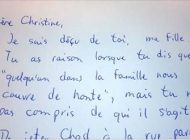 ère Christine,
Je suis déçu de toi, ma fille
Tu as raison lorsque tu dis que
"quelqu'un dans la famille nous
couvre de honte", mais tu n'
pas compris de qui il s'agit
Chad à la rue